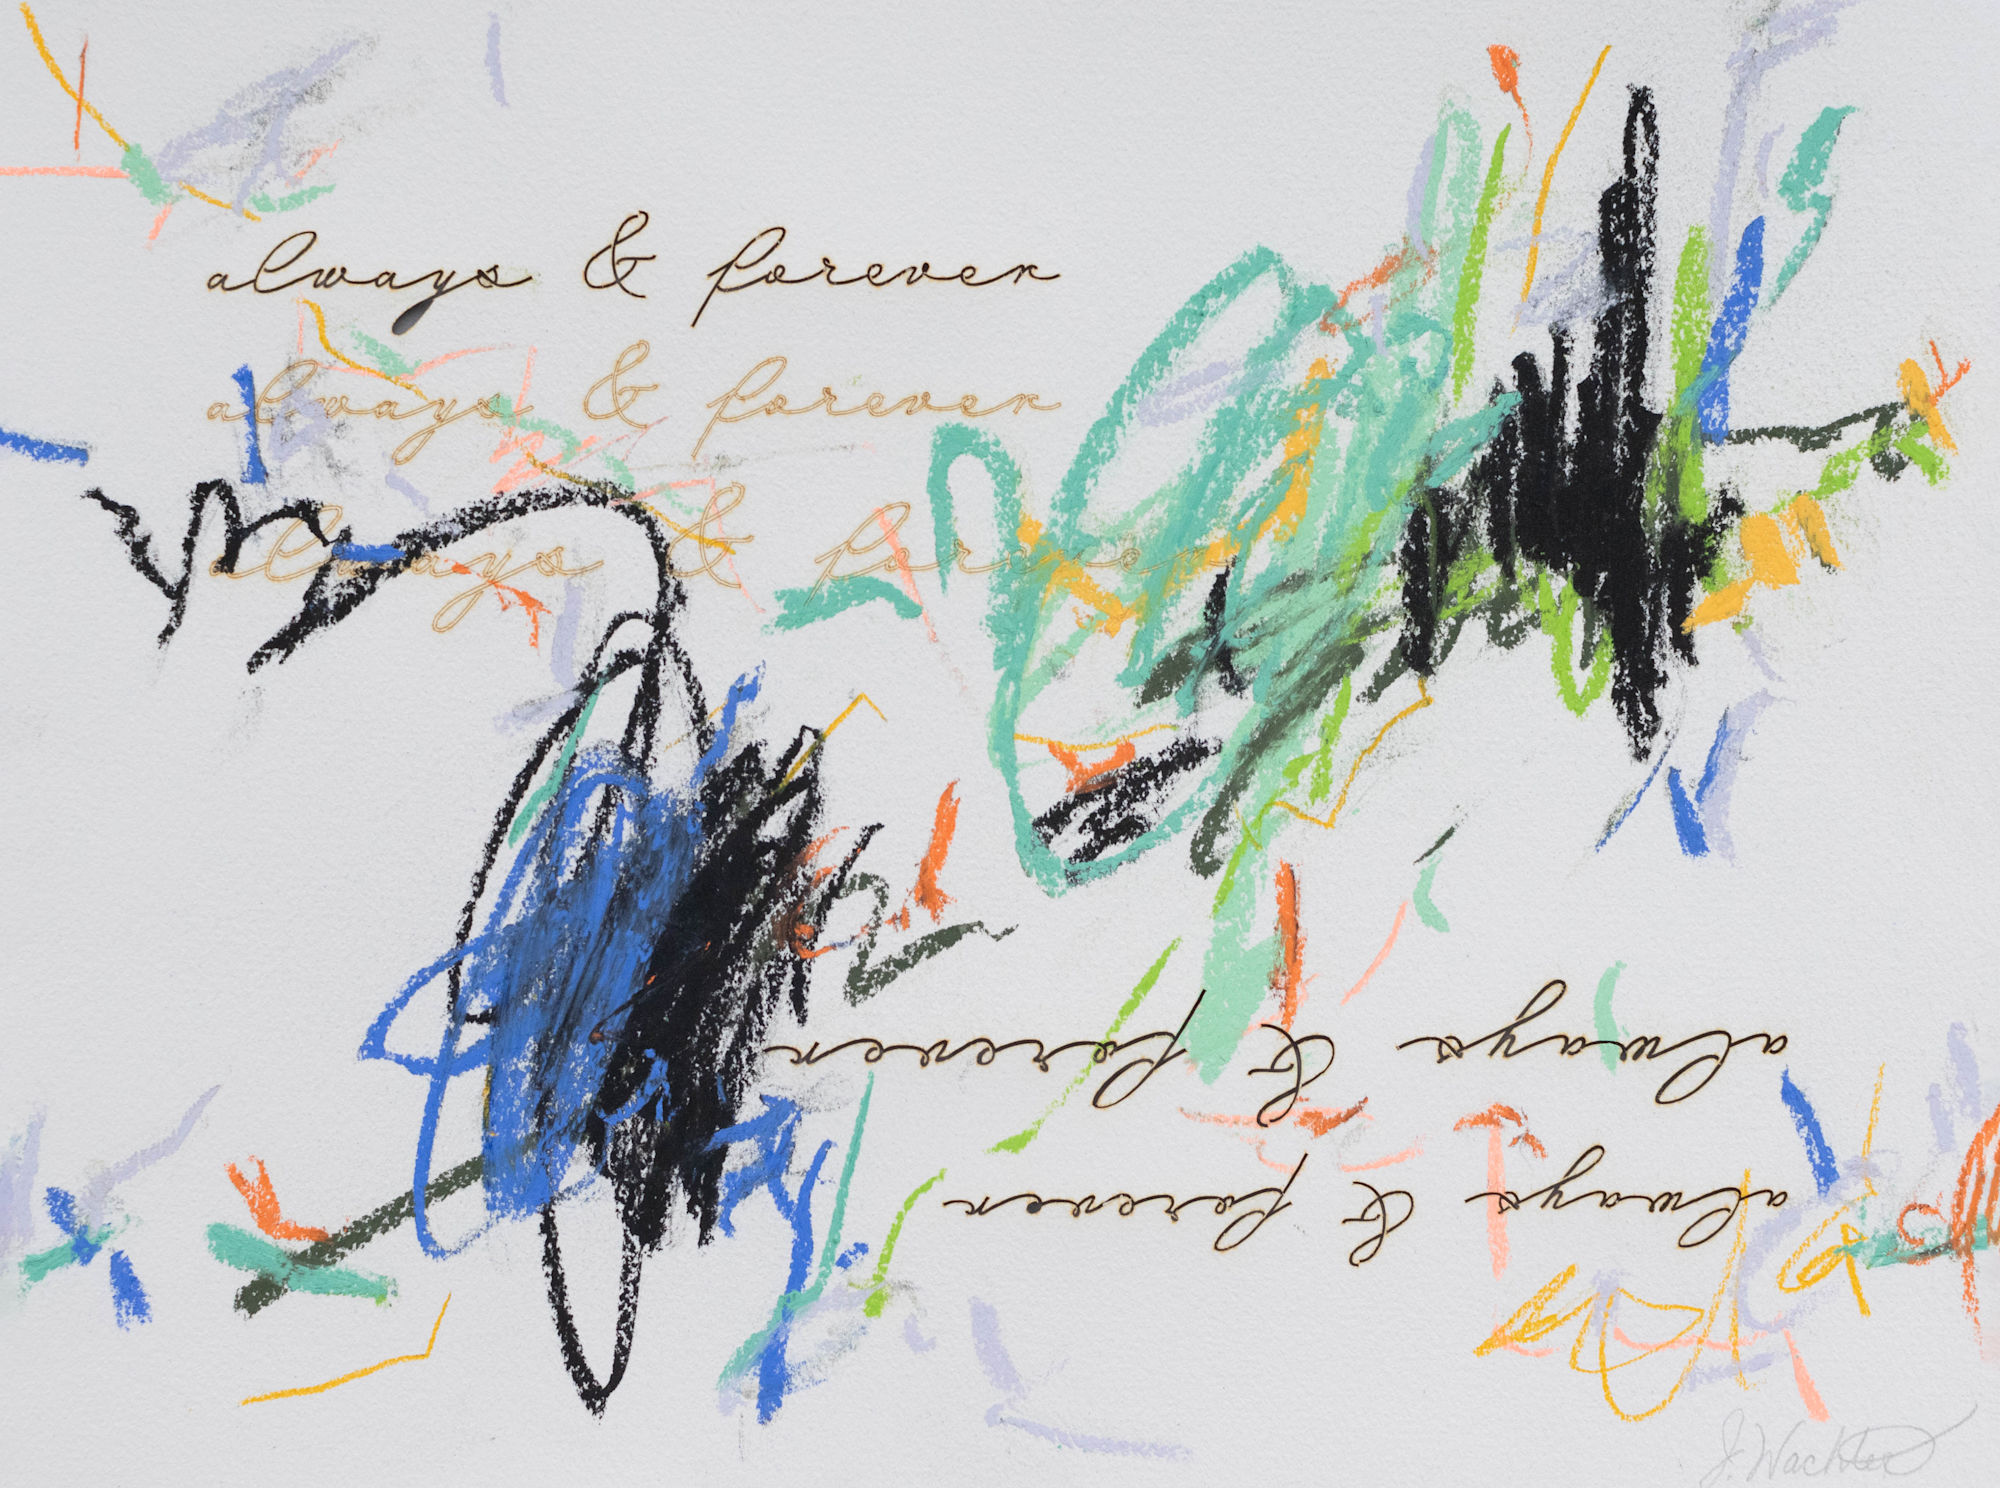 always & forever
always & forever
always & forever
always & forever
always & forever
J. Wachter